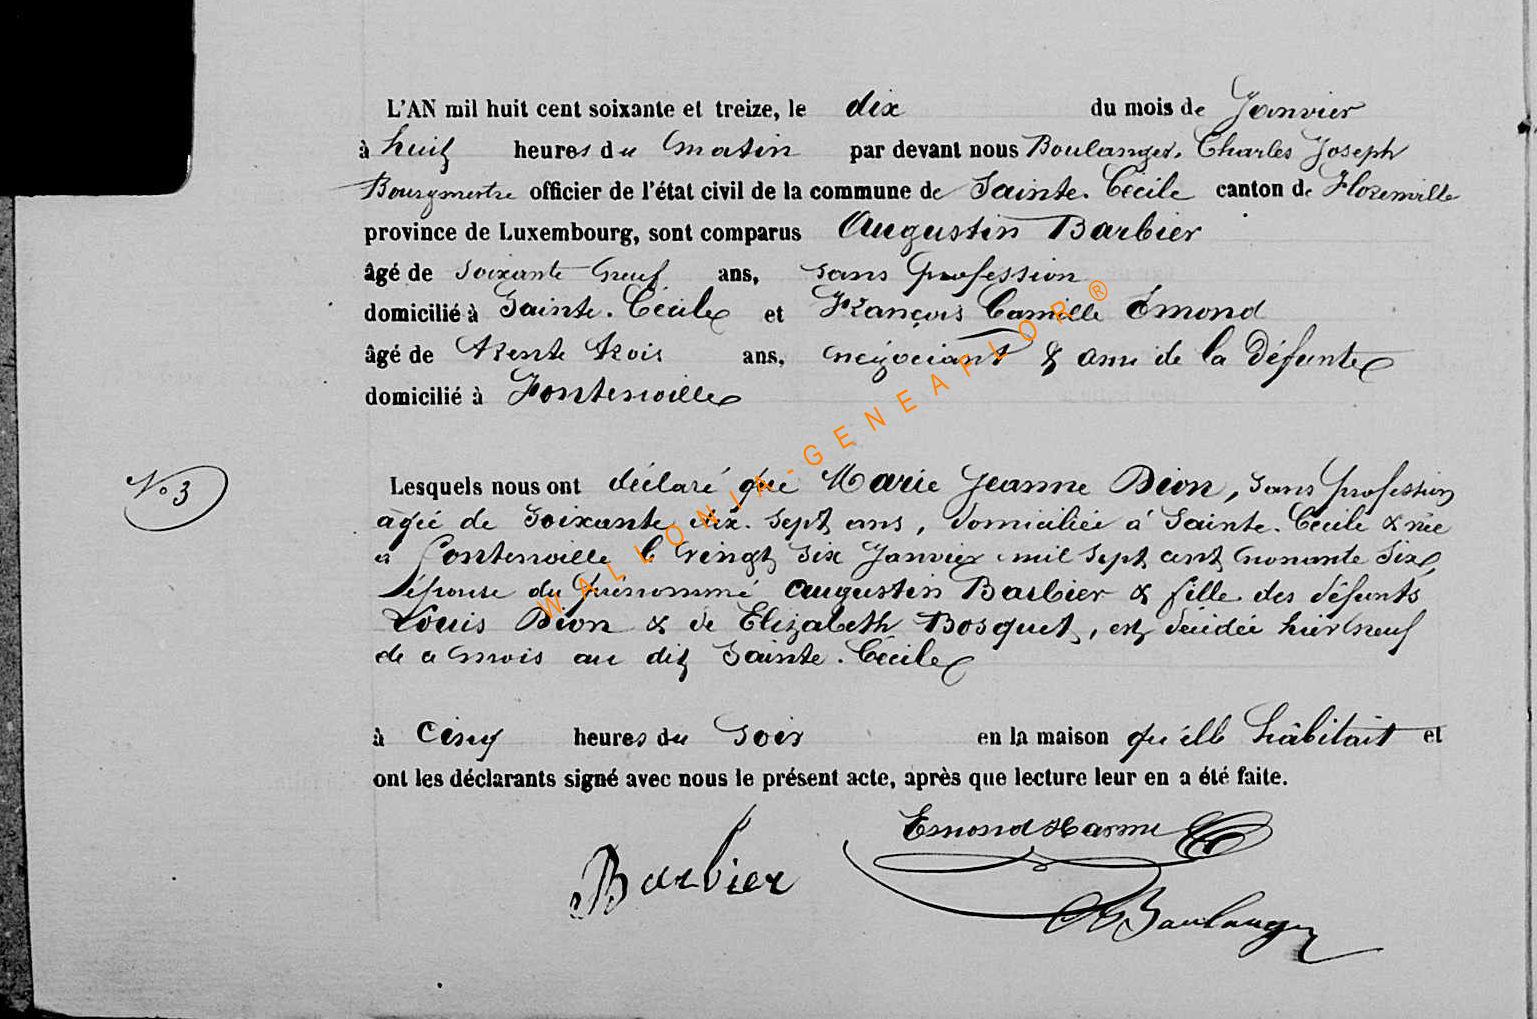 L'AN mil huit cent soixante et treize, le dix du mois de Janvier
à huit heures du matin par devant nous Boulanger, Charles Joseph
Bourgmestre officier de l'état civil de la commune de Sainte-Cécile canton de Florenville
province de Luxembourg, sont comparus Augustin Barbier
âgé de soixante neuf ans, sans profession
domicilié à Sainte-Cécile et François Camille Emond
âgé de trente trois ans, négociant & ami de la défunte
domicilié à Fontenoille
N° 3
Lesquels nous ont déclaré que Marie Jeanne Dion, sans profession
agée de soixante dix-sept ans, domiciliée à Sainte-Cécile & née
à Fontenoille le vingt six Janvier mil sept cent nonante six,
épouse du prénommé Augustin Barbier & fille des défunts
Louis Dion & de Elizabeth Bosquet, est décédée hier neuf
de ce mois au dit Sainte-Cécile
à cinq heures du soir en la maison qu'elle habitait et
ont les déclarants signé avec nous le présent acte, après que lecture leur en a été faite.
Emond
Barbier
Boulanger
WALLONIA-GENEAFLOR®